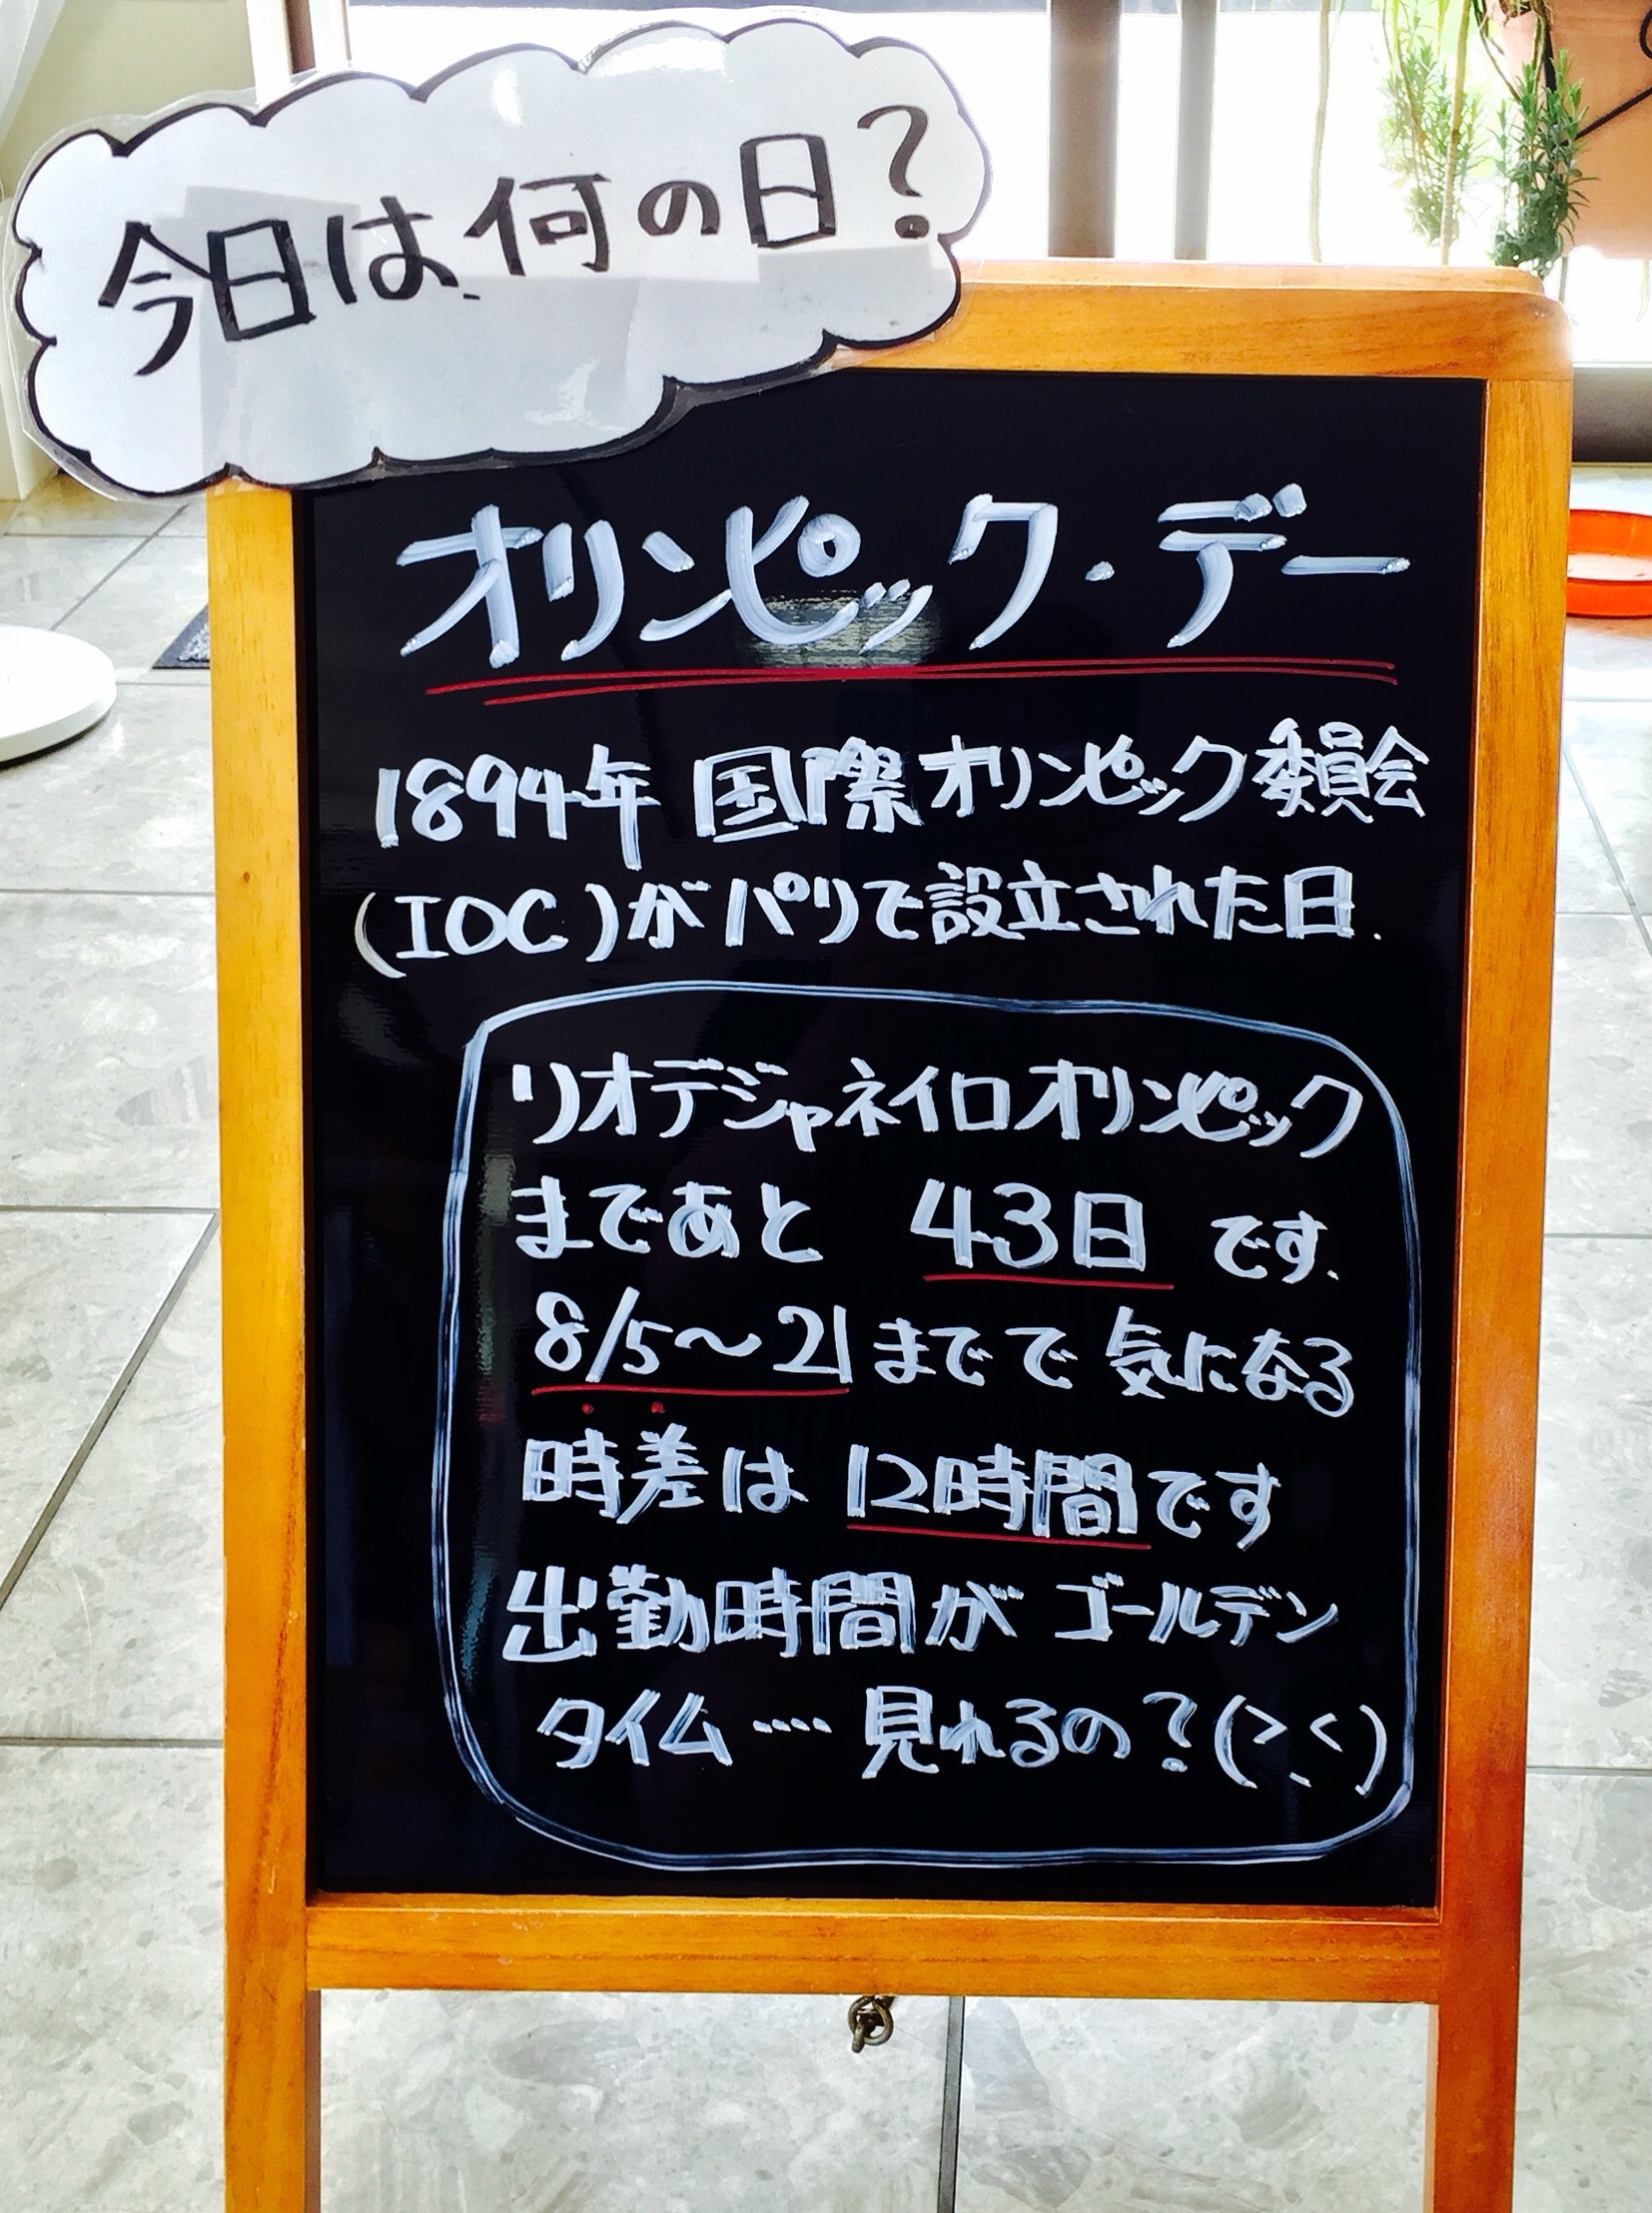 今日は何の日?
オリンピック・デー
1894年 国際オリンピック委員会
(IOC)がパリで設立された日.
リオデジャネイロオリンピック
まであと 43日 です.
8/5〜21までで 気になる
時差は 12時間です
出勤時間が ゴールデン
タイム…… 見れるの?(>、<)